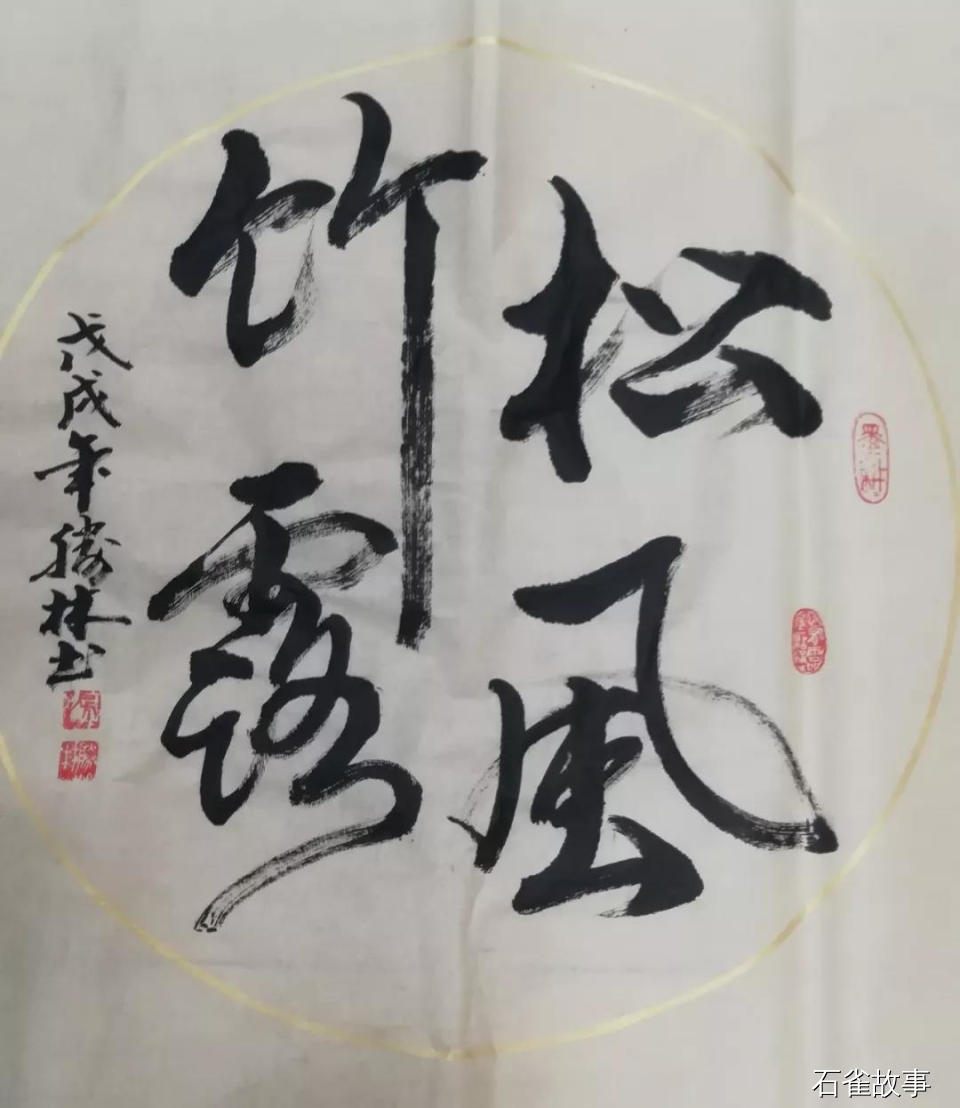 松風
竹露
戊戌年勝林书
石雀故事